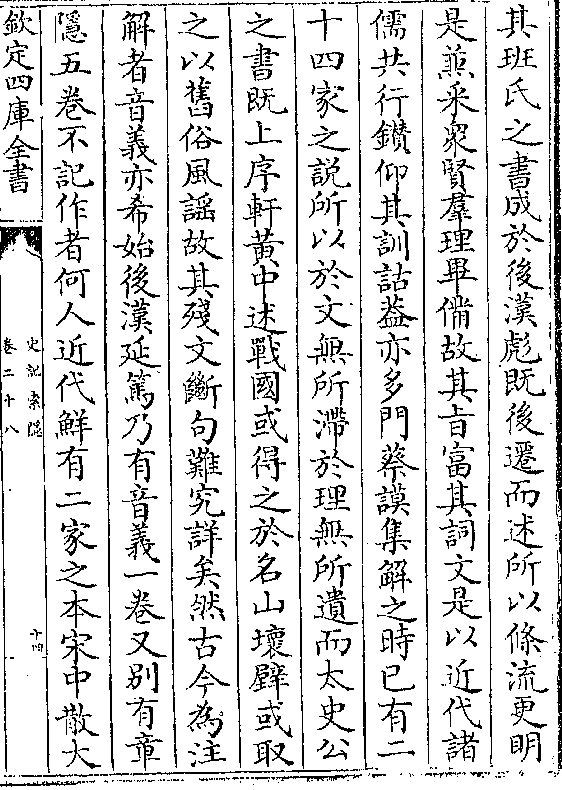 其班氏之書成於後漢彪既後遷而述所以條流更明
是薫采衆賢羣理畢備故其旨富其詞文是以近代諸
儒共行鑽仰其訓詁葢亦多門蔡謨集解之時已有二
十四家之説所以於文無所滯於理無所遺而太史公
之書既上序軒黄中述戰國或得之於名山壞壁或取
之以舊俗風謡故其殘文斷句難究詳矣然古今為注
解者音義亦希始後漢延篤乃有音義一卷又别有章
隱五卷不記作者何人近代鮮有二家之本宋中散大
欽定四庫全書
史記索隱
卷二十八
十四